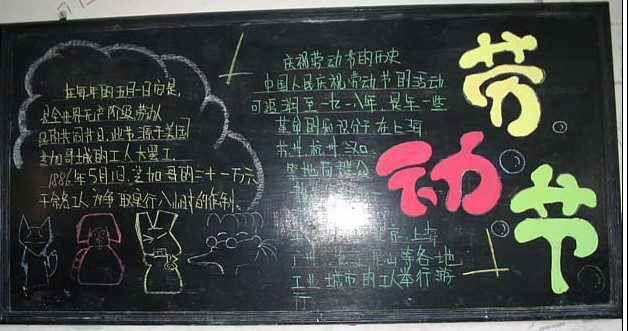 在每年的五月一日的是,
是全世界无产阶级劳动人
民的共同节日,此节源于美国
芝加哥城的工人大罢工,
1886年5月1日,芝加哥的二十一万六
千余名工人为争取实行八小时的工作制。
庆祝劳动节的历史
中国人民庆祝劳动节的活动
可追溯至一九一八年,是年一些
革命的知识分子在上海
苏州 杭州 汉口
等地向群众
北京 上海
广州
山等各地
工业城市的工人举行游
行
劳
动
节